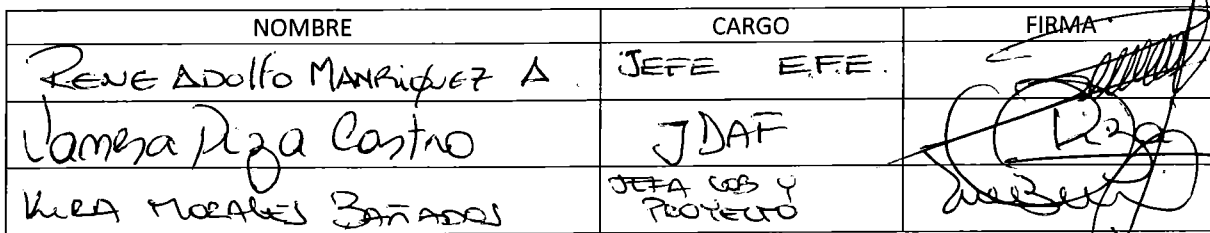 NOMBRE CARGO FIRMA
RENE ADOLFO MANRIQUEZ A. JEFE E.F.E.
Vanesa Diza Castro JDAF
KURA MORALES BAÑADOS JEFA COB Y
PROYECTO